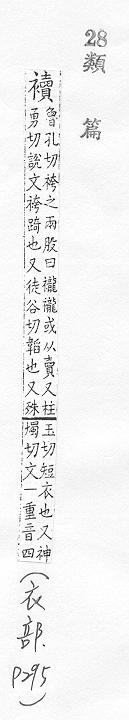 28
類篇
襩
魯孔切袴之兩股曰襱襱或从賣又柱
勇切說文袴踦也又徒谷切韜也又殊
玉切短衣也又神
燭切文一重音四
(衣部.
P295)